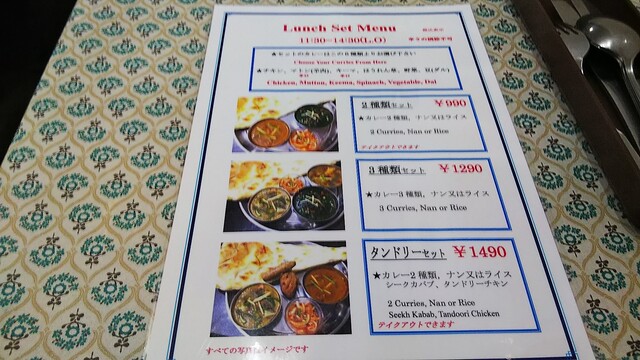 Lunch Set Menu
11:30~14:30(L.O)
★セットのカレーはこの8種類よりお選び下さい
Choose Your Curries From Here
★チキン、マトン(羊肉)、キーマ、ほうれん草、野菜、豆(ダル)
Chicken, Mutton, Keema, Spinach, Vegetable, Dal
2種類セット ￥990
★カレー2種類, ナン又はライス
2 Curries, Nan or Rice
テイクアウトできます
3種類セット ￥1290
★カレー3種類, ナン又はライス
3 Curries, Nan or Rice
タンドリーセット ￥1490
★カレー2種類, ナン又はライス
シークカバブ、タンドリーチキン
2 Curries, Nan or Rice
Seekh Kabab, Tandoori Chicken
テイクアウトできます
すべての写真はイメージです